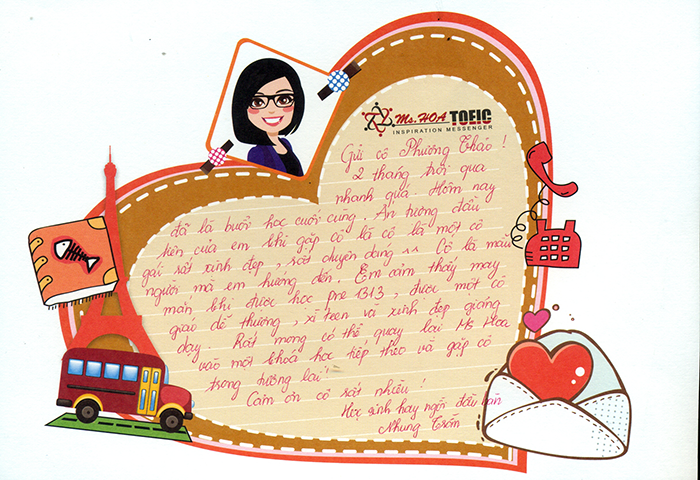 Ms. HOA TOEIC
INSPIRATION MESSENGER
Gửi cô Phương Thảo !
2 tháng trôi qua
nhanh quá. Hôm nay
đã là buổi học cuối cùng. Ấn tượng đầu
tiên của em khi gặp cô là cô là một cô
gái rất xinh đẹp, rất duyên dáng ^^ Cô là mẫu
người mà em hướng đến. Em cảm thấy may
mắn khi được học pre B13, được một cô
giáo dễ thương, xì teen và xinh đẹp giảng
dạy. Rất mong có thể quay lại Ms Hoa
vào một khoá học tiếp theo và gặp cô
trong tương lai!
Cảm ơn cô rất nhiều!
Học sinh hay ngồi đầu bàn
Nhung Trần